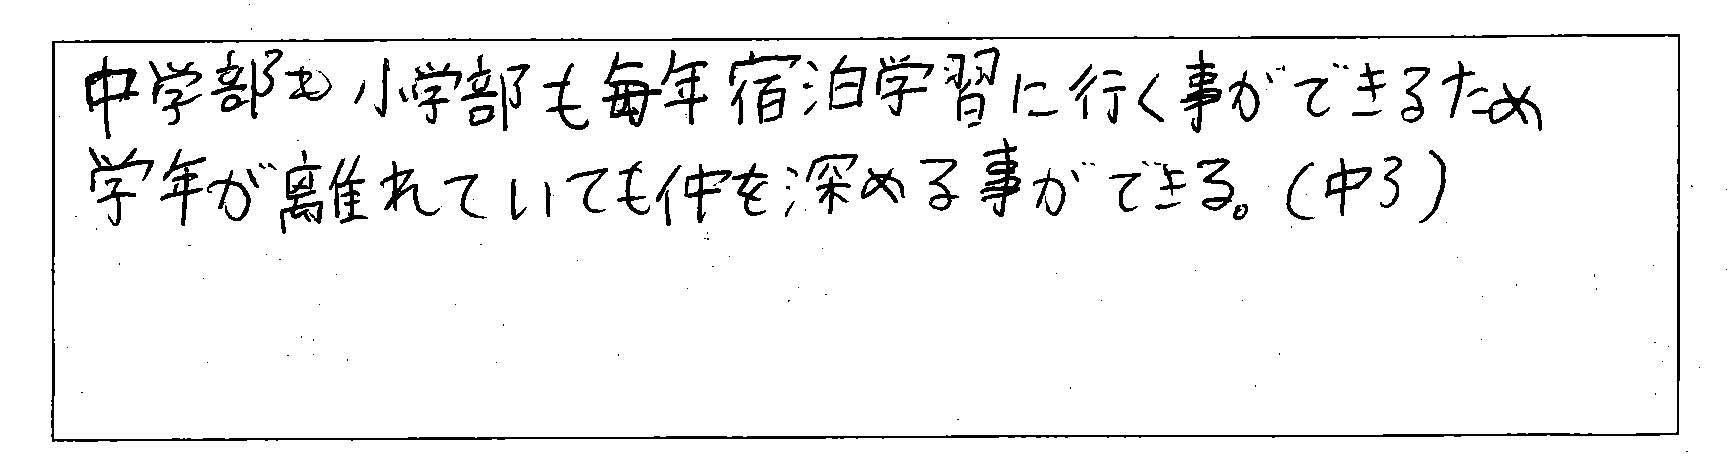 中学部も小学部も毎年宿泊学習に行く事ができるため
学年が離れていても仲を深める事ができる。(中3)